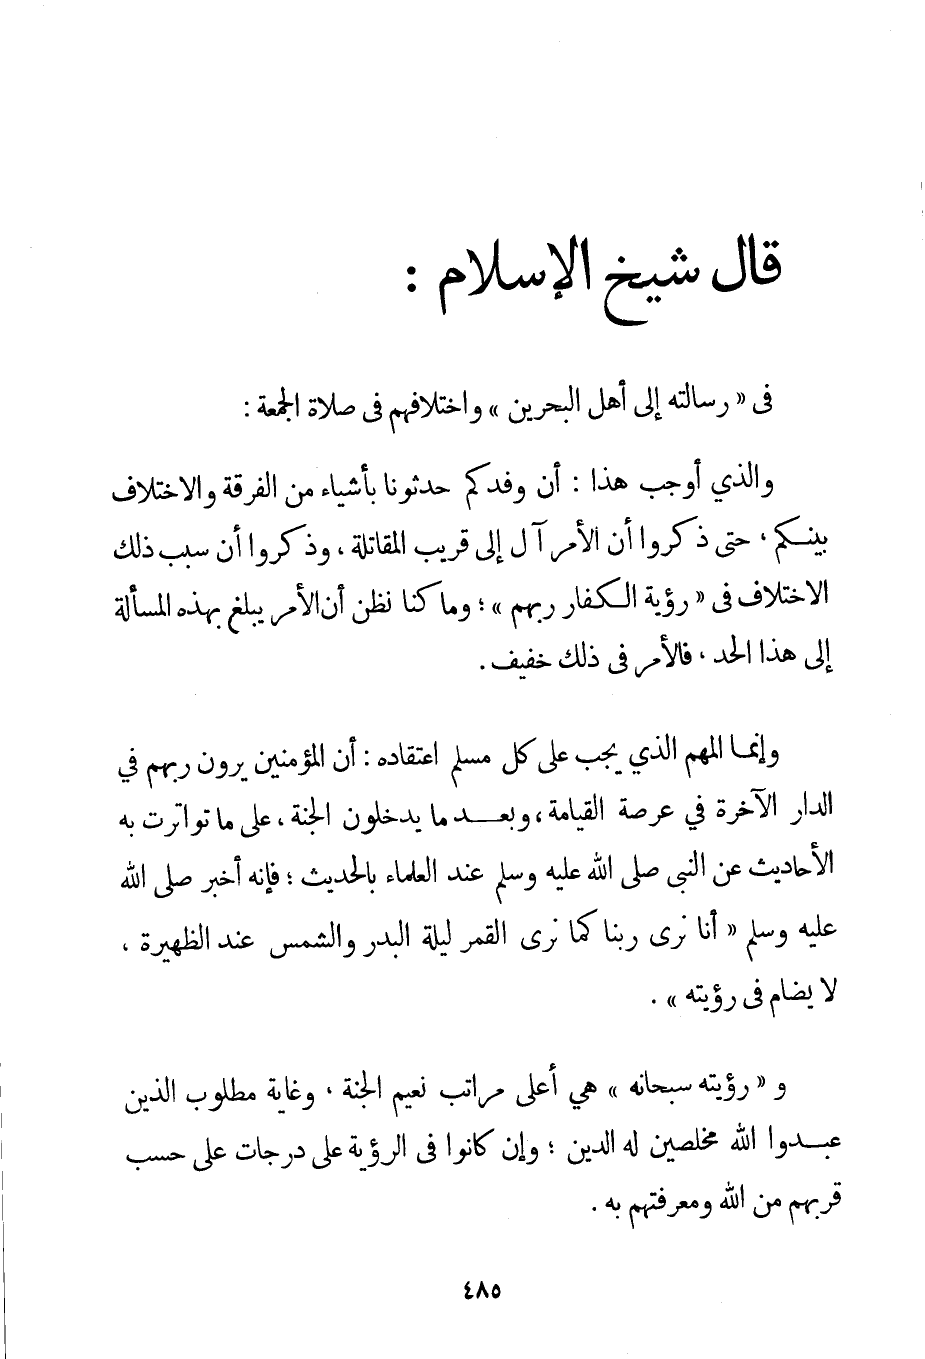 قال شيخ الإسلام :
فى « رسالته إلى أهل البحرين » واختلافهم فى صلاة الجمعة :
والذي أوجب هذا : أن وفدكم حدثونا بأشياء من الفرقة والاختلاف
بينكم ، حتى ذكروا أن الأمر آل إلى قريب المقاتلة ، وذكروا أن سبب ذلك
الاختلاف فى « رؤية الكفار ربهم » ؛ وما كنا نظن أن الأمر يبلغ بهذه المسألة
إلى هذا الحد ، فالأمر فى ذلك خفيف .
وإنما المهم الذي يجب على كل مسلم اعتقاده : أن المؤمنين يرون ربهم في
الدار الآخرة في عرصة القيامة ، وبعد ما يدخلون الجنة ، على ما تواترت به
الأحاديث عن النبى صلى الله عليه وسلم عند العلماء بالحديث ؛ فإنه أخبر صلى الله
عليه وسلم « أنا نرى ربنا كما نرى القمر ليلة البدر والشمس عند الظهيرة ،
لا يضام فى رؤيته » .
و « رؤيته سبحانه » هي أعلى مراتب نعيم الجنة ، وغاية مطلوب الذين
عبدوا الله مخلصين له الدين ؛ وإن كانوا فى الرؤية على درجات على حسب
قربهم من الله ومعرفتهم به .
٤٨٥